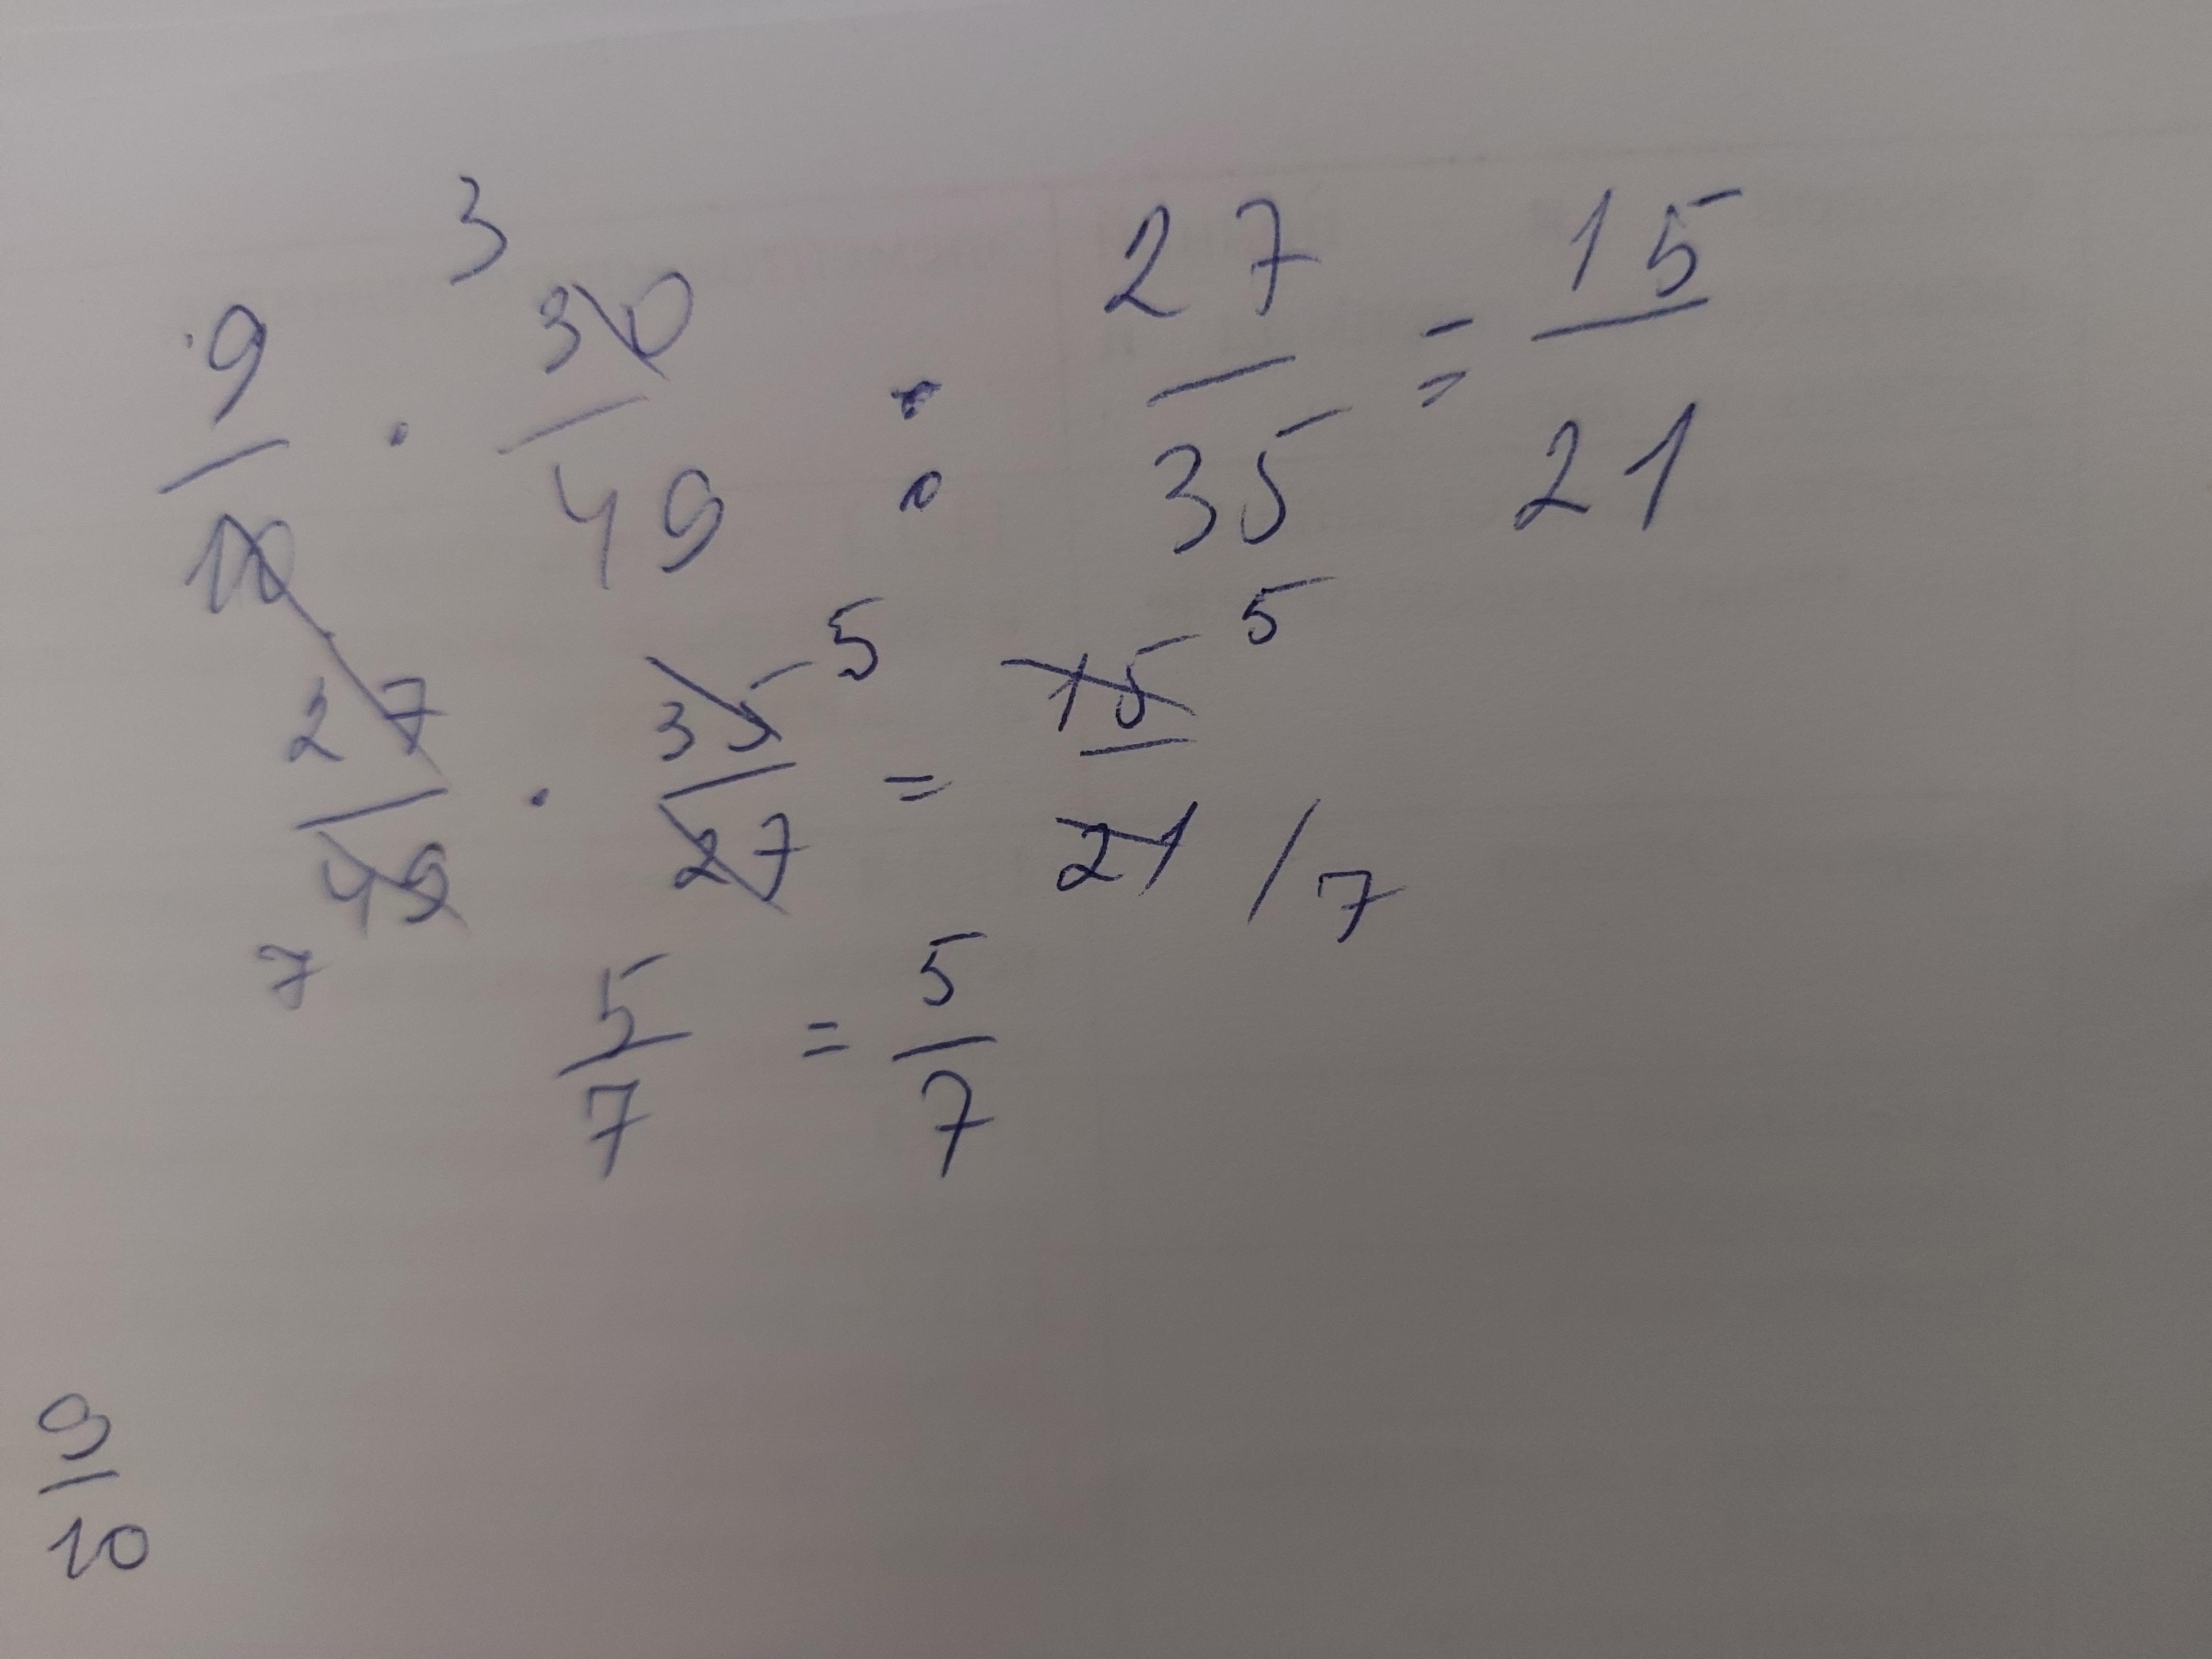 9/10 · 30/49 3 : 27/35 = 15/21
27/49 7 · 35/27 5 = 15/21 5 / 7
5/7 = 5/7
9/10